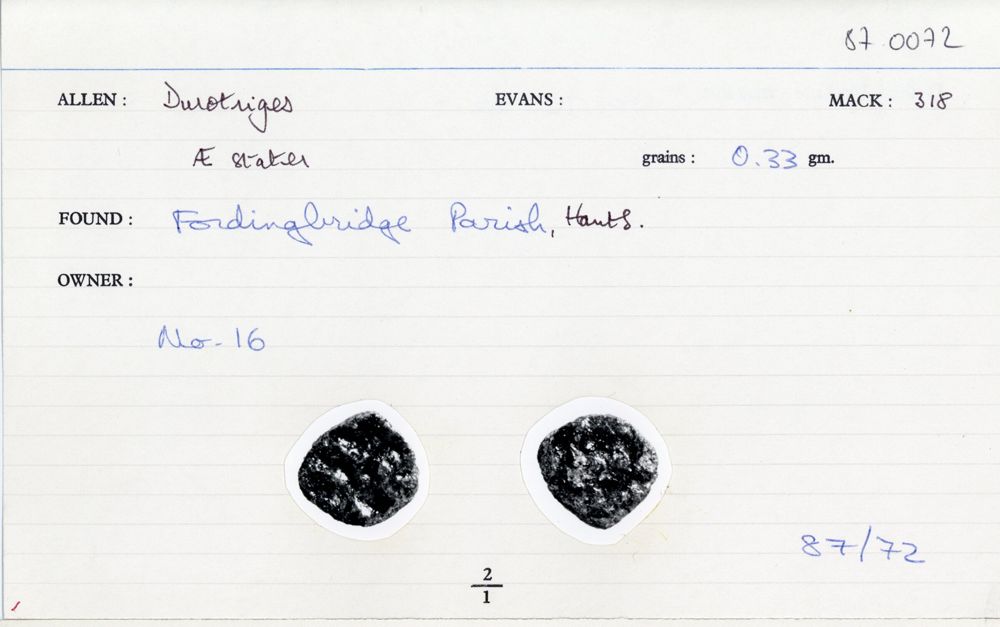 87.0072
ALLEN : Durotriges EVANS : MACK : 318
Æ stater grains : 0.33 gm.
FOUND : Fordingbridge Parish, Hants.
OWNER :
No. 16
87/72
2
1